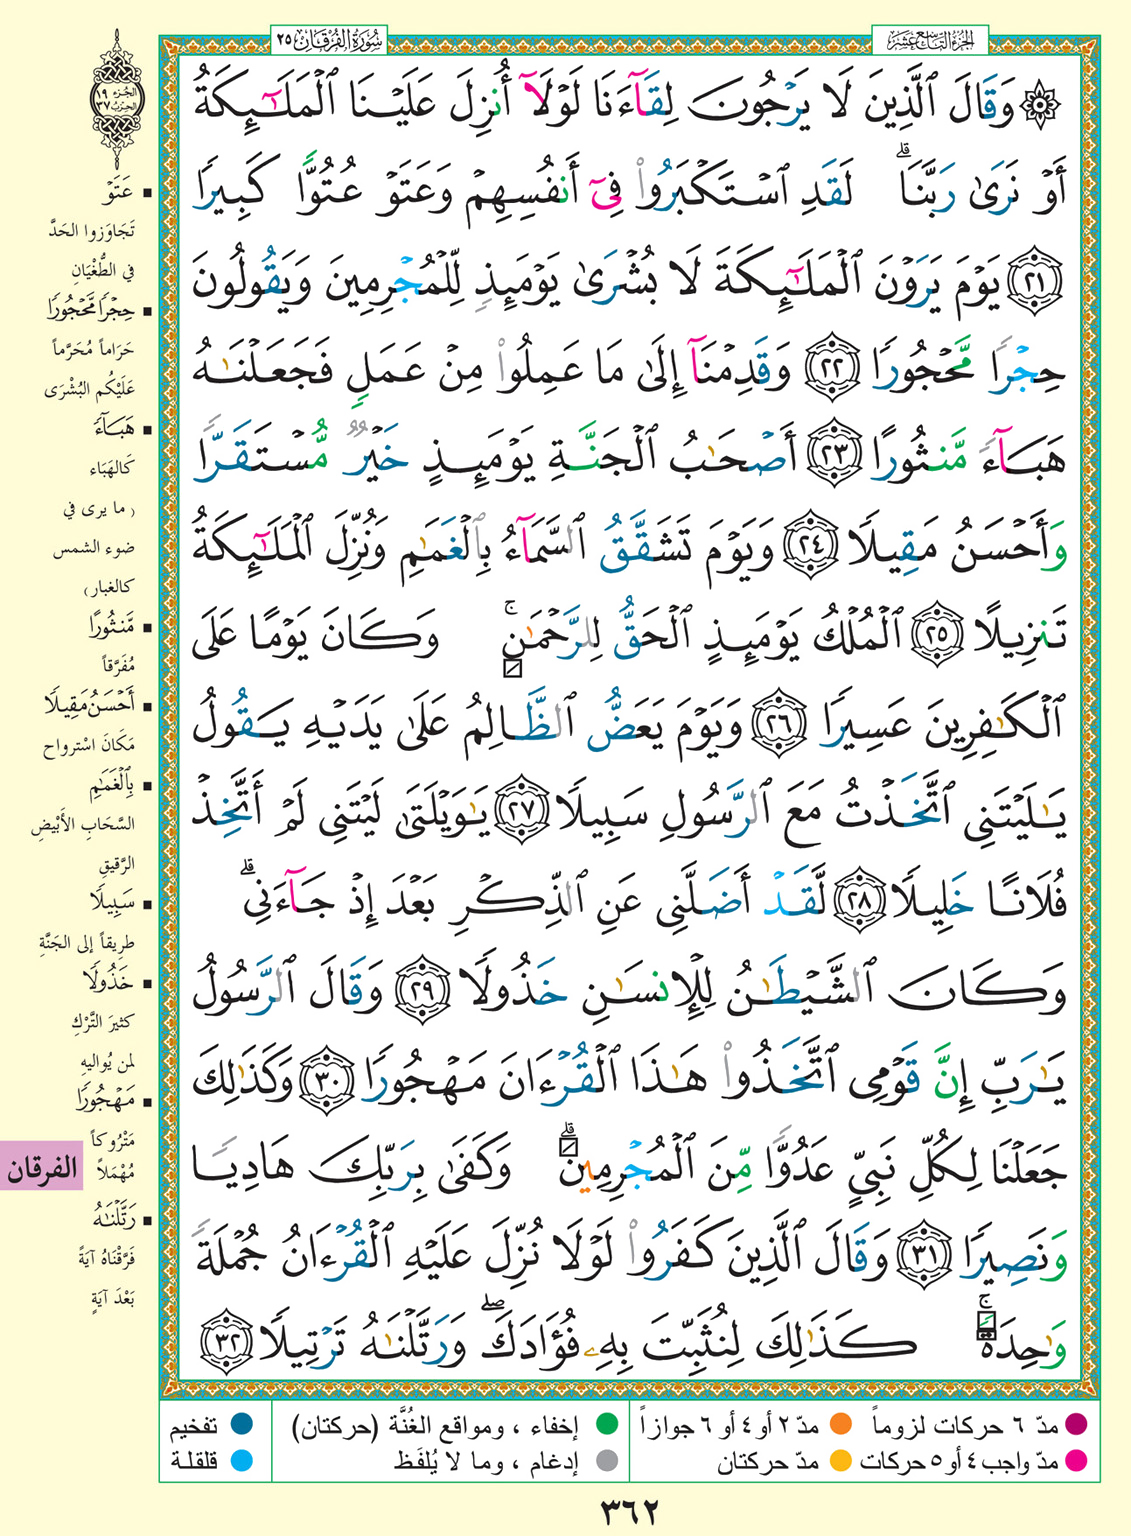 الجزء التاسع عشر
سورة الفرقان ٢٥
۞ وَقَالَ ٱلَّذِينَ لَا يَرْجُونَ لِقَآءَنَا لَوْلَآ أُنزِلَ عَلَيْنَا ٱلْمَلَـٰٓئِكَةُ
أَوْ نَرَىٰ رَبَّنَا ۗ لَقَدِ ٱسْتَكْبَرُوا۟ فِىٓ أَنفُسِهِمْ وَعَتَوْ عُتُوًّا كَبِيرًا
٢١ يَوْمَ يَرَوْنَ ٱلْمَلَـٰٓئِكَةَ لَا بُشْرَىٰ يَوْمَئِذٍ لِّلْمُجْرِمِينَ وَيَقُولُونَ
حِجْرًا مَّحْجُورًا ٢٢ وَقَدِمْنَآ إِلَىٰ مَا عَمِلُوا۟ مِنْ عَمَلٍ فَجَعَلْنَـٰهُ
هَبَآءً مَّنثُورًا ٢٣ أَصْحَـٰبُ ٱلْجَنَّةِ يَوْمَئِذٍ خَيْرٌ مُّسْتَقَرًّا
وَأَحْسَنُ مَقِيلًا ٢٤ وَيَوْمَ تَشَقَّقُ ٱلسَّمَآءُ بِٱلْغَمَـٰمِ وَنُزِّلَ ٱلْمَلَـٰٓئِكَةُ
تَنزِيلًا ٢٥ ٱلْمُلْكُ يَوْمَئِذٍ ٱلْحَقُّ لِلرَّحْمَـٰنِ ۚ وَكَانَ يَوْمًا عَلَى
ٱلْكَـٰفِرِينَ عَسِيرًا ٢٦ وَيَوْمَ يَعَضُّ ٱلظَّالِمُ عَلَىٰ يَدَيْهِ يَقُولُ
يَـٰلَيْتَنِى ٱتَّخَذْتُ مَعَ ٱلرَّسُولِ سَبِيلًا ٢٧ يَـٰوَيْلَتَىٰ لَيْتَنِى لَمْ أَتَّخِذْ
فُلَانًا خَلِيلًا ٢٨ لَّقَدْ أَضَلَّنِى عَنِ ٱلذِّكْرِ بَعْدَ إِذْ جَآءَنِى ۗ
وَكَانَ ٱلشَّيْطَـٰنُ لِلْإِنسَـٰنِ خَذُولًا ٢٩ وَقَالَ ٱلرَّسُولُ
يَـٰرَبِّ إِنَّ قَوْمِى ٱتَّخَذُوا۟ هَـٰذَا ٱلْقُرْءَانَ مَهْجُورًا ٣٠ وَكَذَٰلِكَ
جَعَلْنَا لِكُلِّ نَبِىٍّ عَدُوًّا مِّنَ ٱلْمُجْرِمِينَ ۗ وَكَفَىٰ بِرَبِّكَ هَادِيًا
وَنَصِيرًا ٣١ وَقَالَ ٱلَّذِينَ كَفَرُوا۟ لَوْلَا نُزِّلَ عَلَيْهِ ٱلْقُرْءَانُ جُمْلَةً
وَٰحِدَةً ۚ كَذَٰلِكَ لِنُثَبِّتَ بِهِۦ فُؤَادَكَ ۖ وَرَتَّلْنَـٰهُ تَرْتِيلًا ٣٢
الجزء ١٩
الحزب ٣٧
عَتَوْ
تَجَاوَزوا الحَدَّ
في الطُّغْيَانِ
حِجْرًا مَّحْجُورًا
حَرَاماً مُحَرَّماً
عَلَيْكُم البُشْرَى
هَبَآءً
كَالهَبَاء
( ما يرى في
ضوء الشمس
كالغبار)
مَّنثُورًا
مُفَرَّقاً
أَحْسَنُ مَقِيلًا
مَكَانَ اسْترواح
بِٱلْغَمَـٰمِ
السَّحَابِ الأَبْيضِ
الرَّقيقِ
سَبِيلًا
طريقاً إلى الجَنَّةِ
خَذُولًا
كثيرَ التَّرْكِ
لمن يُواليهِ
مَهْجُورًا
مَتْرُوكاً
مُهْمَلاً
رَتَّلْنَـٰهُ
فَرَّقْنَاهُ آيَةً
بَعْدَ آيَةٍ
الفرقان
مدّ ٦ حركات لزوماً
مدّ ٢ أو ٤ أو ٦ جوازاً
إخفاء ، ومواقع الغُنَّة (حركتان)
تفخيم
مدّ واجب ٤ أو ٥ حركات
مدّ حركتان
إدغام ، وما لا يُلفَظ
قلقلة
٣٦٢